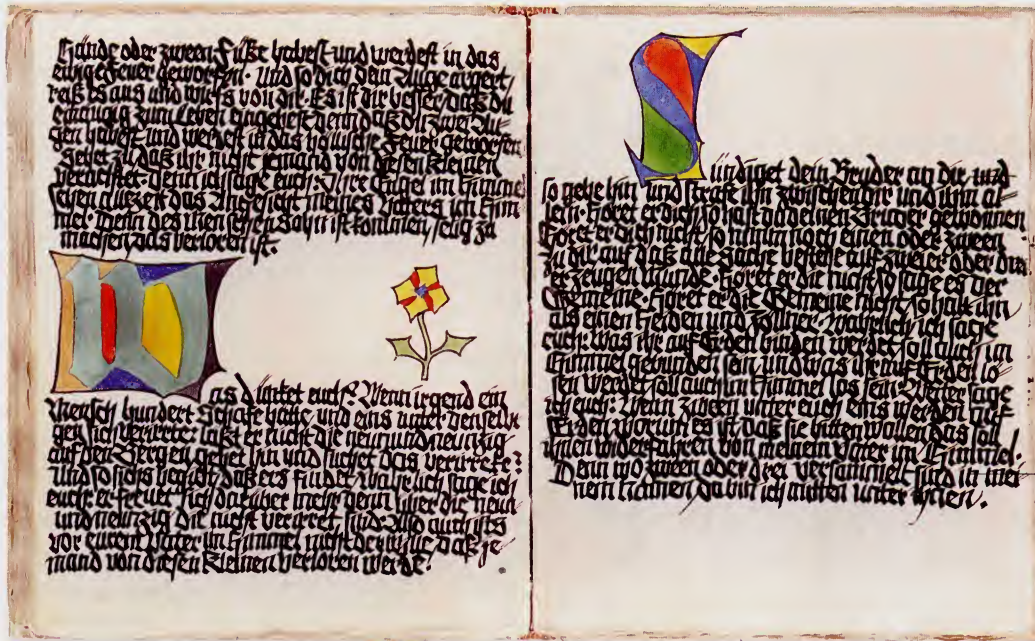 Hände oder zween Füße habest und werdest in das
ewige Feuer geworfen. Und so dich dein Auge ärgert,
reiß es aus und wirfs von dir. Es ist dir besser, daß du
einäugig zum Leben eingehest denn daß du zwei Au-
gen habest und werdest in das höllische Feuer geworfen
Sehet zu daß ihr nicht jemand von diesen Kleinen
verachtet. Denn ich sage euch: Ihre Engel im Himme
sehen allezeit das Angesicht meines Vaters ich Him
mel. Denn des Menschen Sohn ist kommen, selig zu
machen, das verloren ist.
Was dünket euch? Wenn irgend ein
Mensch hundert Schafe hätte und eins unter denselbi
gen sich verirrte: läßt er nicht die neunundneunzig
auf den Bergen gehet hin und suchet das verirrete?
Und so sichs begibt, daß ers findet, wahrlich ich sage ich
euch: er freuet sich darüber mehr denn über die neun
undneunzig die nicht verirret sind. Also auch ists
vor eurem Vater im Himmel nicht der Wille, daß je
mand von diesen Kleinen verloren werde.
Sündiget dein Bruder an dir, und
so gehe hin und strafe ihn zwischen dir und ihm al-
lein. Höret er dich so hast du deinen Bruder gewonnen
Höret er dich nicht, so nimm noch einen oder zween
zu dir auf daß alle Sache bestehe auf zweier oder drei
er Zeugen Munde. Höret er die nicht so sage es der
Gemeine. Höret er die Gemeine nicht, so halt ihn
als einen Heiden und Zöllner. Wahrlich ich sage
euch: Was ihr auf Erden binden werdet, soll auch im
Himmel gebunden sein, und was ihr auf Erden lö-
sen werdet, soll auch im Himmel los sein. Weiter sage
ich euch: Wenn zween unter euch eins werden auf
Erden worum es ist daß sie bitten wollen das soll
ihnen widerfahren von meinem Vater im Himmel.
Denn wo zween oder drei versammelt sind in mei-
nem Namen, da bin ich mitten unter ihnen.